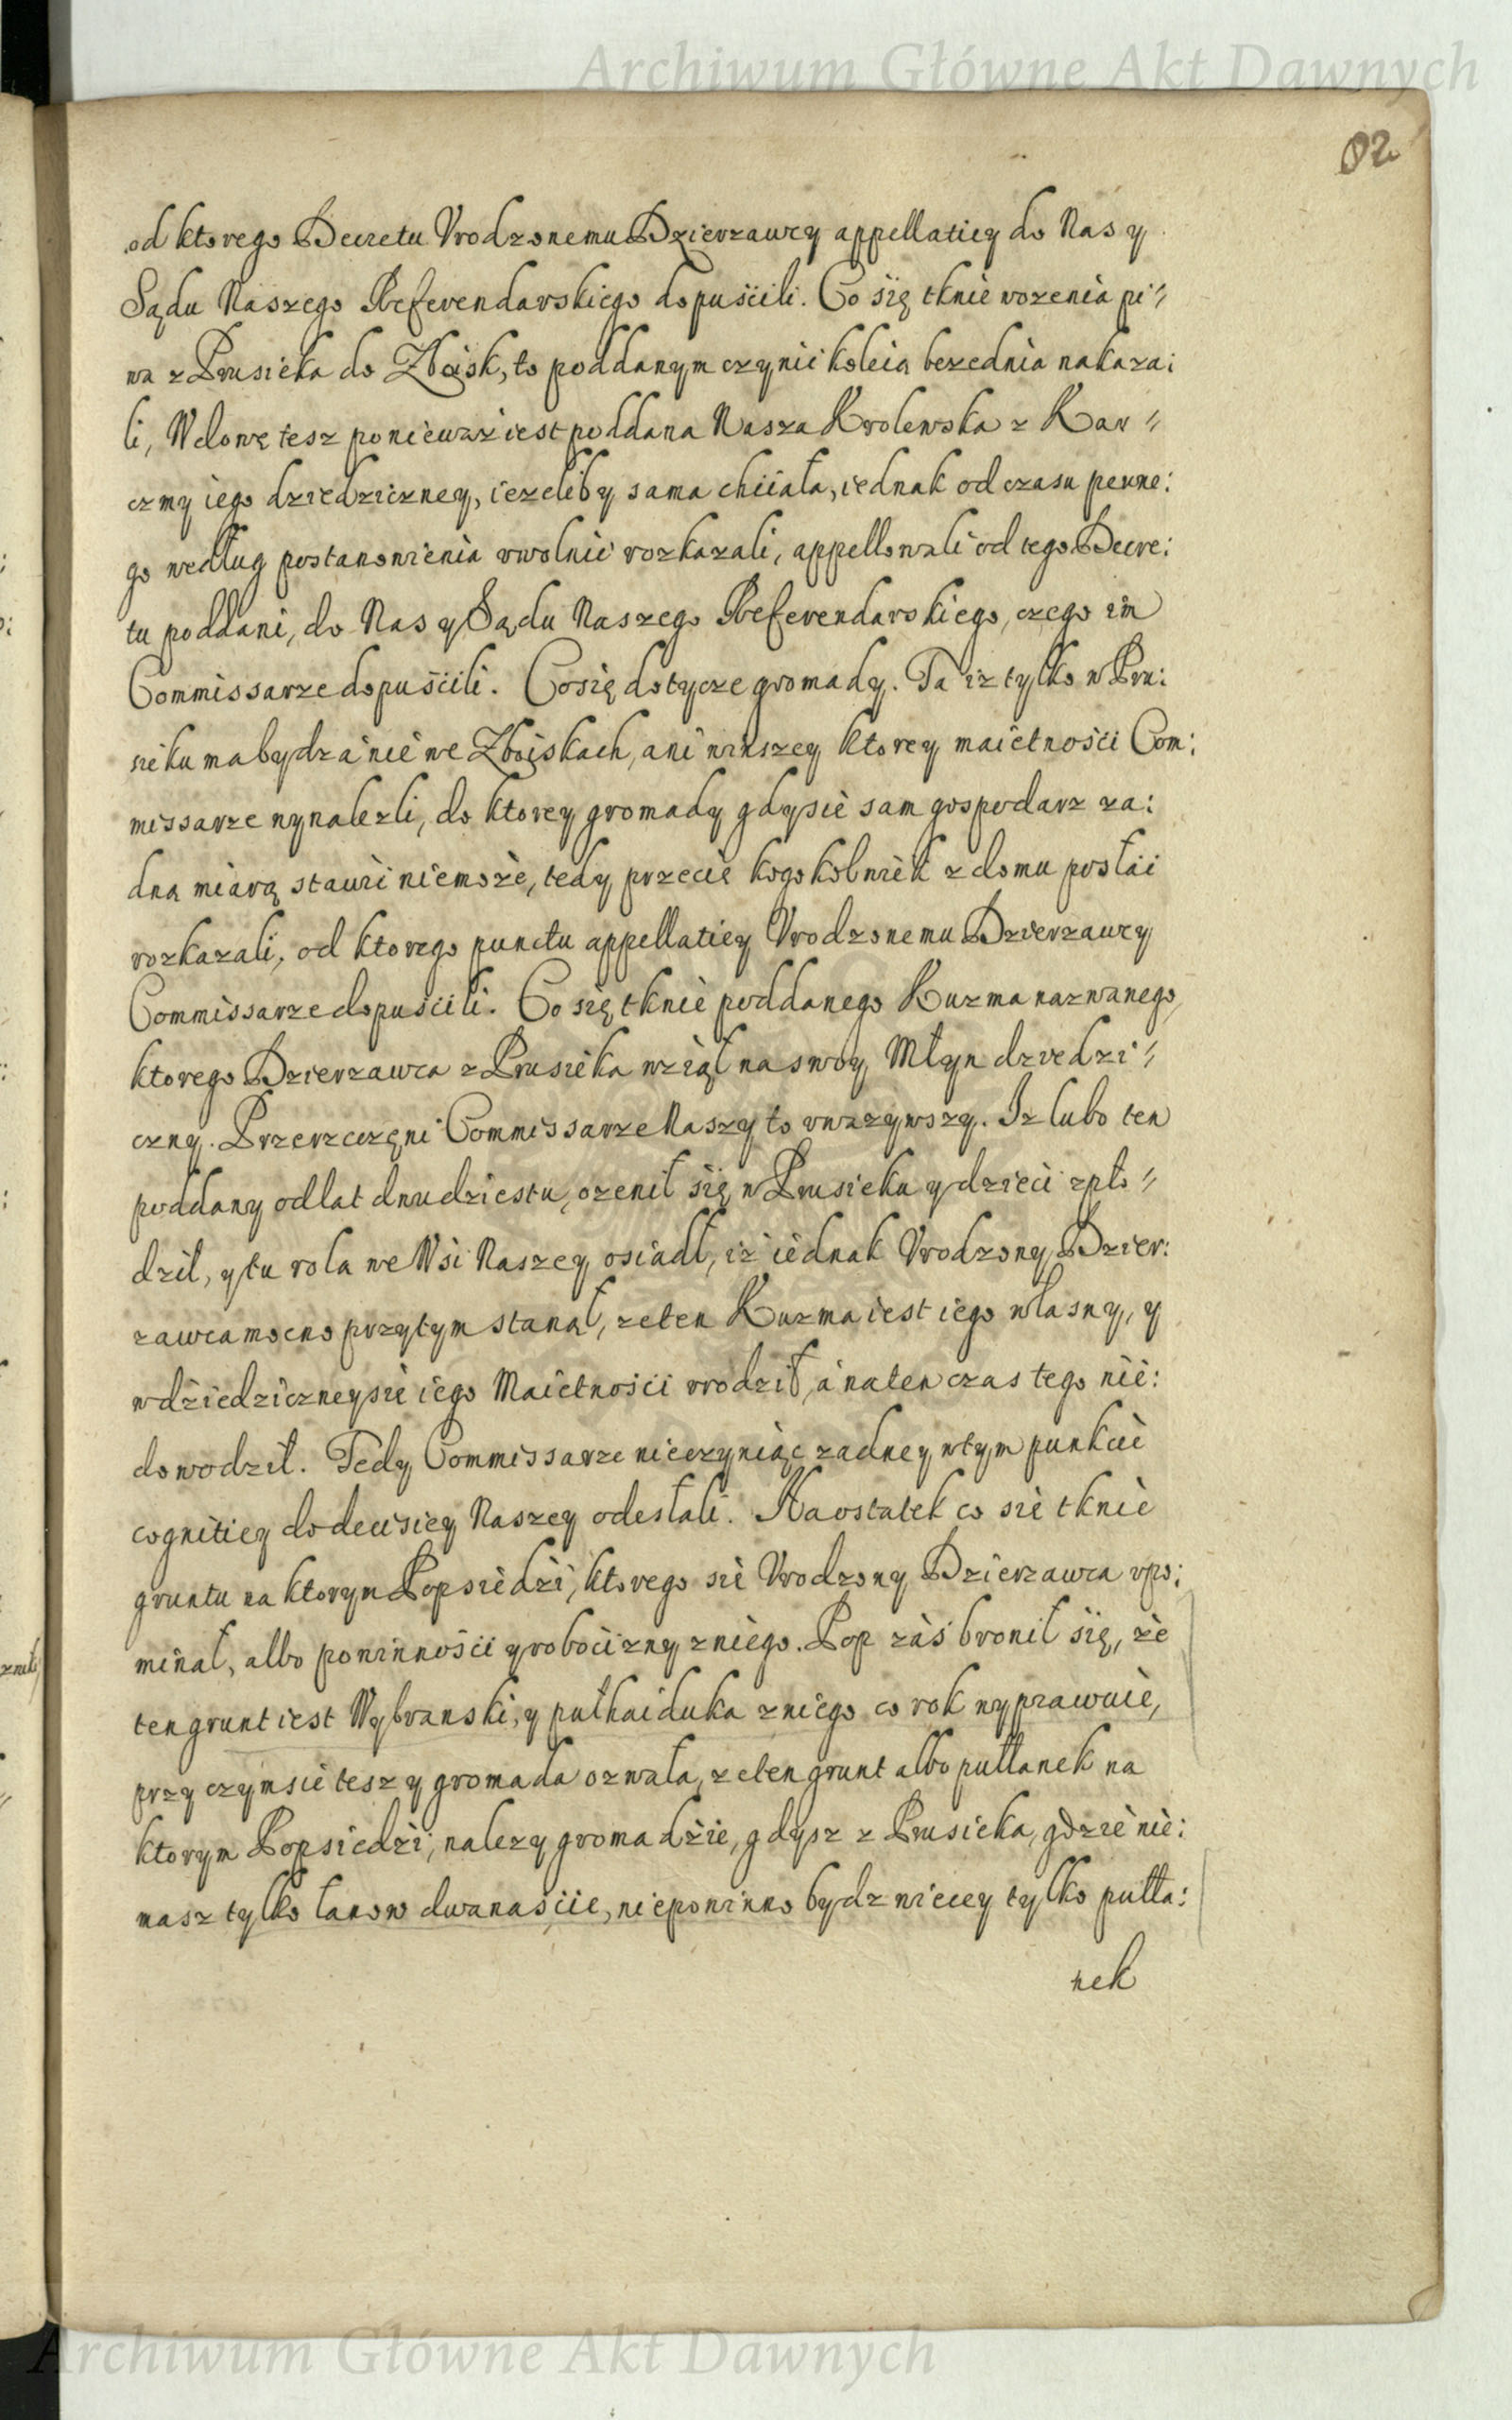 Archiwum Główne Akt Dawnych
02
od ktorego Decretu Vrodzonemu Dzierzawcy appellatiey do Nas y
Sądu Naszego Referendarskiego dopuścili. Co się tknie wozenia pi〃
wa z Prusieka do Zboisk, to poddanym czynić koleią bezednia nakaza:
li, Wdowę tesz poniewaz iest poddana Nasza Krolewska z Kar〃
czmy iego dziedziczney, iezeliby sama chciała, iednak od czasu pewne:
go według postanowienia vwolnić rozkazali, appellowali od tego Decre:
tu poddani, do Nas y Sądu Naszego Referendarskiego, czego im
Commissarze dopuścili. Co się dotycze gromady. Ta iz tylko w Pru:
sieku ma bydz a nie we Zboiskach, ani w inszey ktorey maiętności Com:
missarze wynalezli, do ktorey gromady gdy sie sam gospodarz za:
dną miarą stawić niemoże, tedy przecię kogokolwiek z domu posłać
rozkazali, od ktorego punctu appellatiey Vrodzonemu Dzierzawcy
Commissarze dopuścili. Co się tknie poddanego Kuzma nazwanego,
ktorego Dzierzawca z Prusieka wziął na swoy Młyn dziedzi〃
czny. Przerzeczęni Commissarze Naszy to vwazywszy. Iz lubo ten
poddany od lat dwudziestu, ozenił się w Prusieku y dzieci zpło〃
dził, y tu rola we Wsi Naszey osiadł, iz iednak Vrodzony Dzier:
zawca mocno przy tym stanął, ze ten Kuzma iest iego własny, y
w dziedziczney sie iego Maiętności vrodził, a na ten czas tego nie:
dowodził. Tedy Commissarze nieczyniąc zadney w tym punkcie
cognitiey do decisiey Naszey odesłali. Na ostatek co sie tknie
gruntu na ktorym Pop siedzi, ktorego sie Vrodzony Dzierzawca vpo:
minał, albo powinności y robocizny z niego. Pop zaś bronił się, że
ten grunt iest Wybranski, y pułhaiduka z niego co rok wyprawuie,
przy czym sie tesz y gromada ozwała, ze ten grunt albo pułłanek na
ktorym Pop siedzi, nalezy gromadzie, gdysz z Prusieka, gdzie nie:
masz tylko łanow dwanaście, niepowinno bydz wiecey tylko pułła:
nek
Archiwum Główne Akt Dawnych